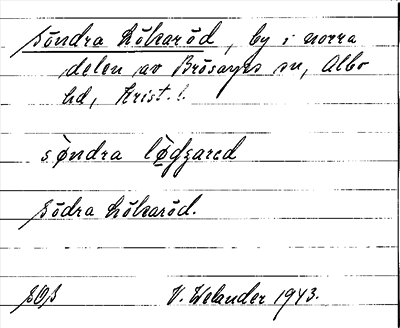 Söndra Lökaröd, by i norra
delen av Brösarps sn, Albo
hd, Krist. l.
sòndra lø̀gared
Södra Lökaröd.
SOS V. Welander 1943.